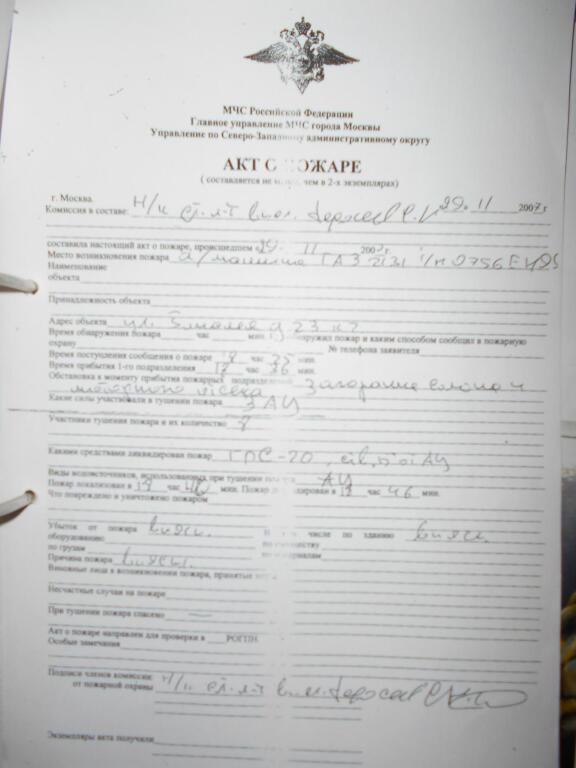 МЧС Российской Федерации
Главное управление МЧС города Москвы
Управление по Северо-Западному административному округу
АКТ О ПОЖАРЕ
( составляется не чем в 2-х экземплярах)
г. Москва. 29. 11 2007 г
Комиссия в составе: Н/к ст. л-т вн. сл.
составила настоящий акт о пожаре, происшедшем 29. 11 2007 г.
Место возникновения пожара а/машина ГАЗ
Наименование
объекта
Принадлежность объекта
Адрес объекта ул. д 23 к
Время обнаружения пожара час мин. обнаружил пожар и каким способом сообщил в пожарную
охрану № телефона заявителя
Время поступления сообщения о пожаре 18 час 35 мин.
Время прибытия 1-го подразделения час 36 мин.
Обстановка к моменту прибытия пожарных подразделений Загорание салона и
моторного отсека
Какие силы участвовали в тушении пожара 3АЦ
Участники тушения пожара и их количество 8
Какими средствами ликвидирован пожар ГПС-20, АЦ
Виды водоисточников, использованных при тушении пожара АЦ
Пожар локализован в час 40 мин. Пожар ликвидирован в час 46 мин.
Что повреждено и уничтожено пожаром
Убыток от пожара выясн. В том числе по зданию выясн.
оборудованию по имуществу
по грузам по материалам
Причина пожара выясн.
Виновные лица в возникновении пожара, принятые меры
Несчастные случаи на пожаре
При тушении пожара спасено —
Акт о пожаре направлен для проверки в РОГПН.
Особые замечания
Подписи членов комиссии Н/к ст. л-т вн. сл.
от пожарной охраны
Экземпляры акта получили